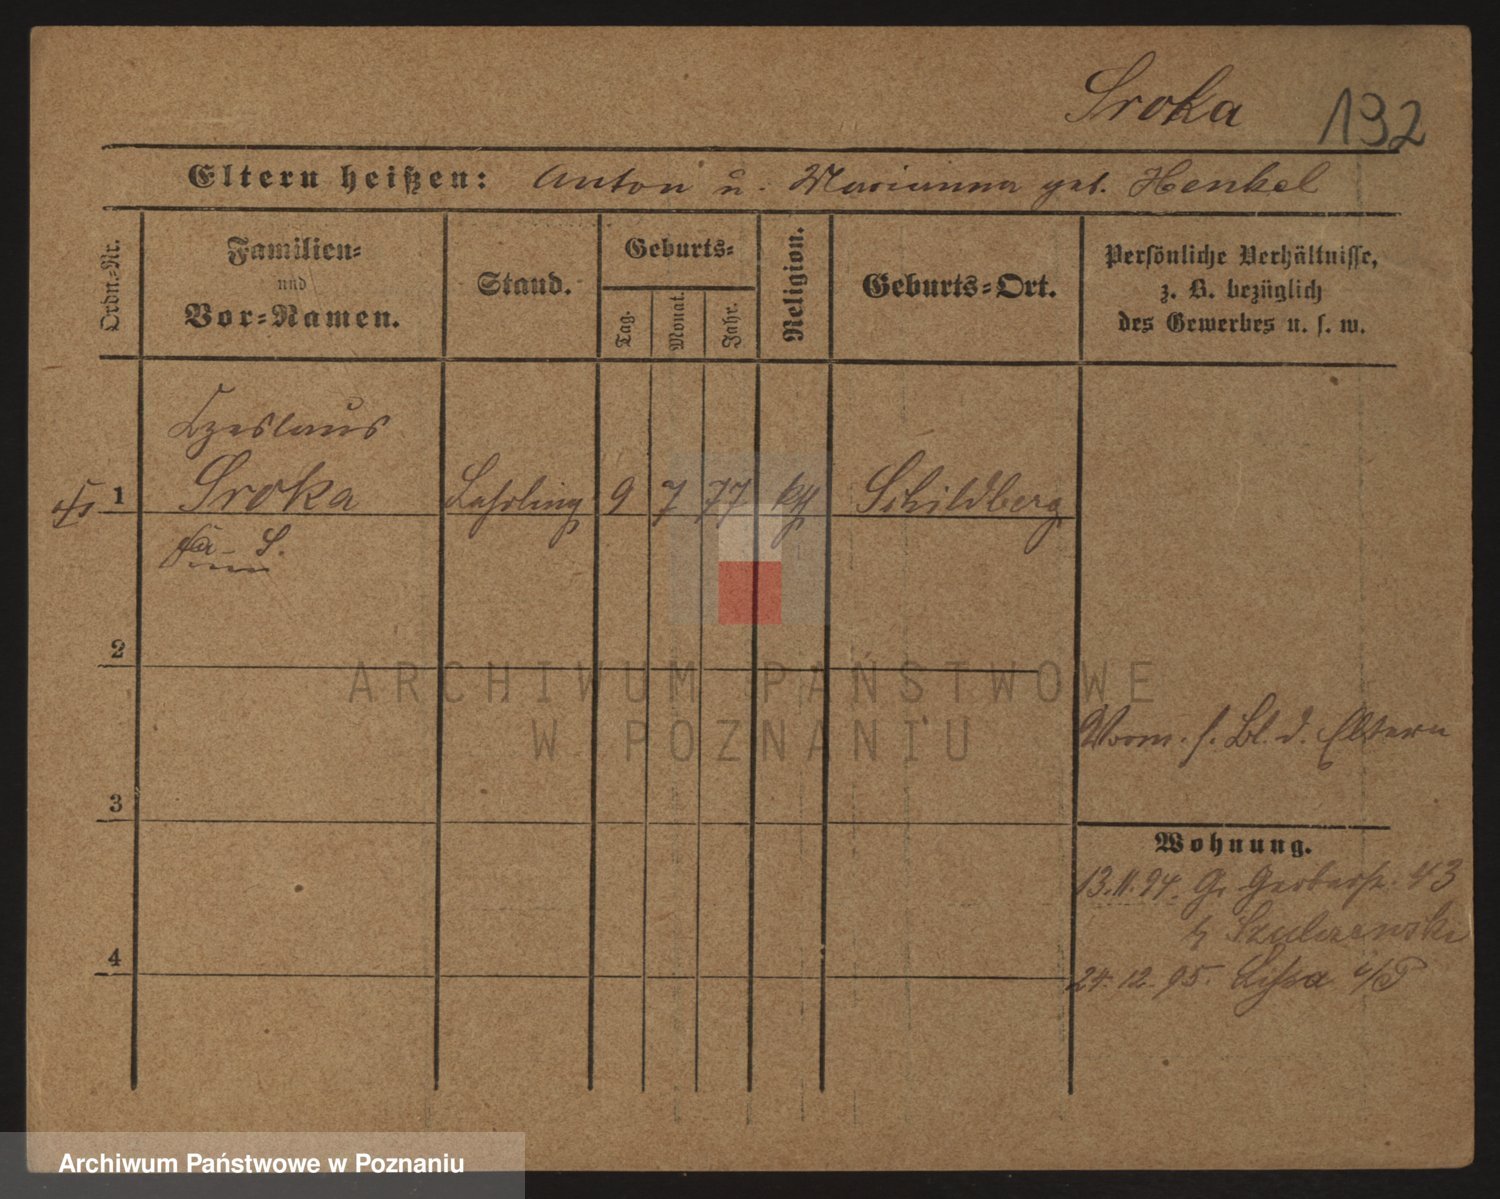 Sroka 132
Eltern heißen: Anton u. Marianna geb. Henkel
Ordn.-Nr.
Familien-
und
Vor-Namen.
Stand.
Geburts-
Tag.
Monat.
Jahr.
Religion.
Geburts-Ort.
Persönliche Verhältnisse,
z. B. bezüglich
des Gewerbes u. s. w.
Czeslaus
1 Sroka Lehrling 9 7 77 kth Schildberg
2
ARCHIWUM PAŃSTWOWE
W POZNANIU
Vorm. s. Bl. d. Eltern
3
Wohnung.
13.11.94. Gr. Gerberstr. 43
b Szulczewski
4
24.12.95. Lissa i/P
Archiwum Państwowe w Poznaniu